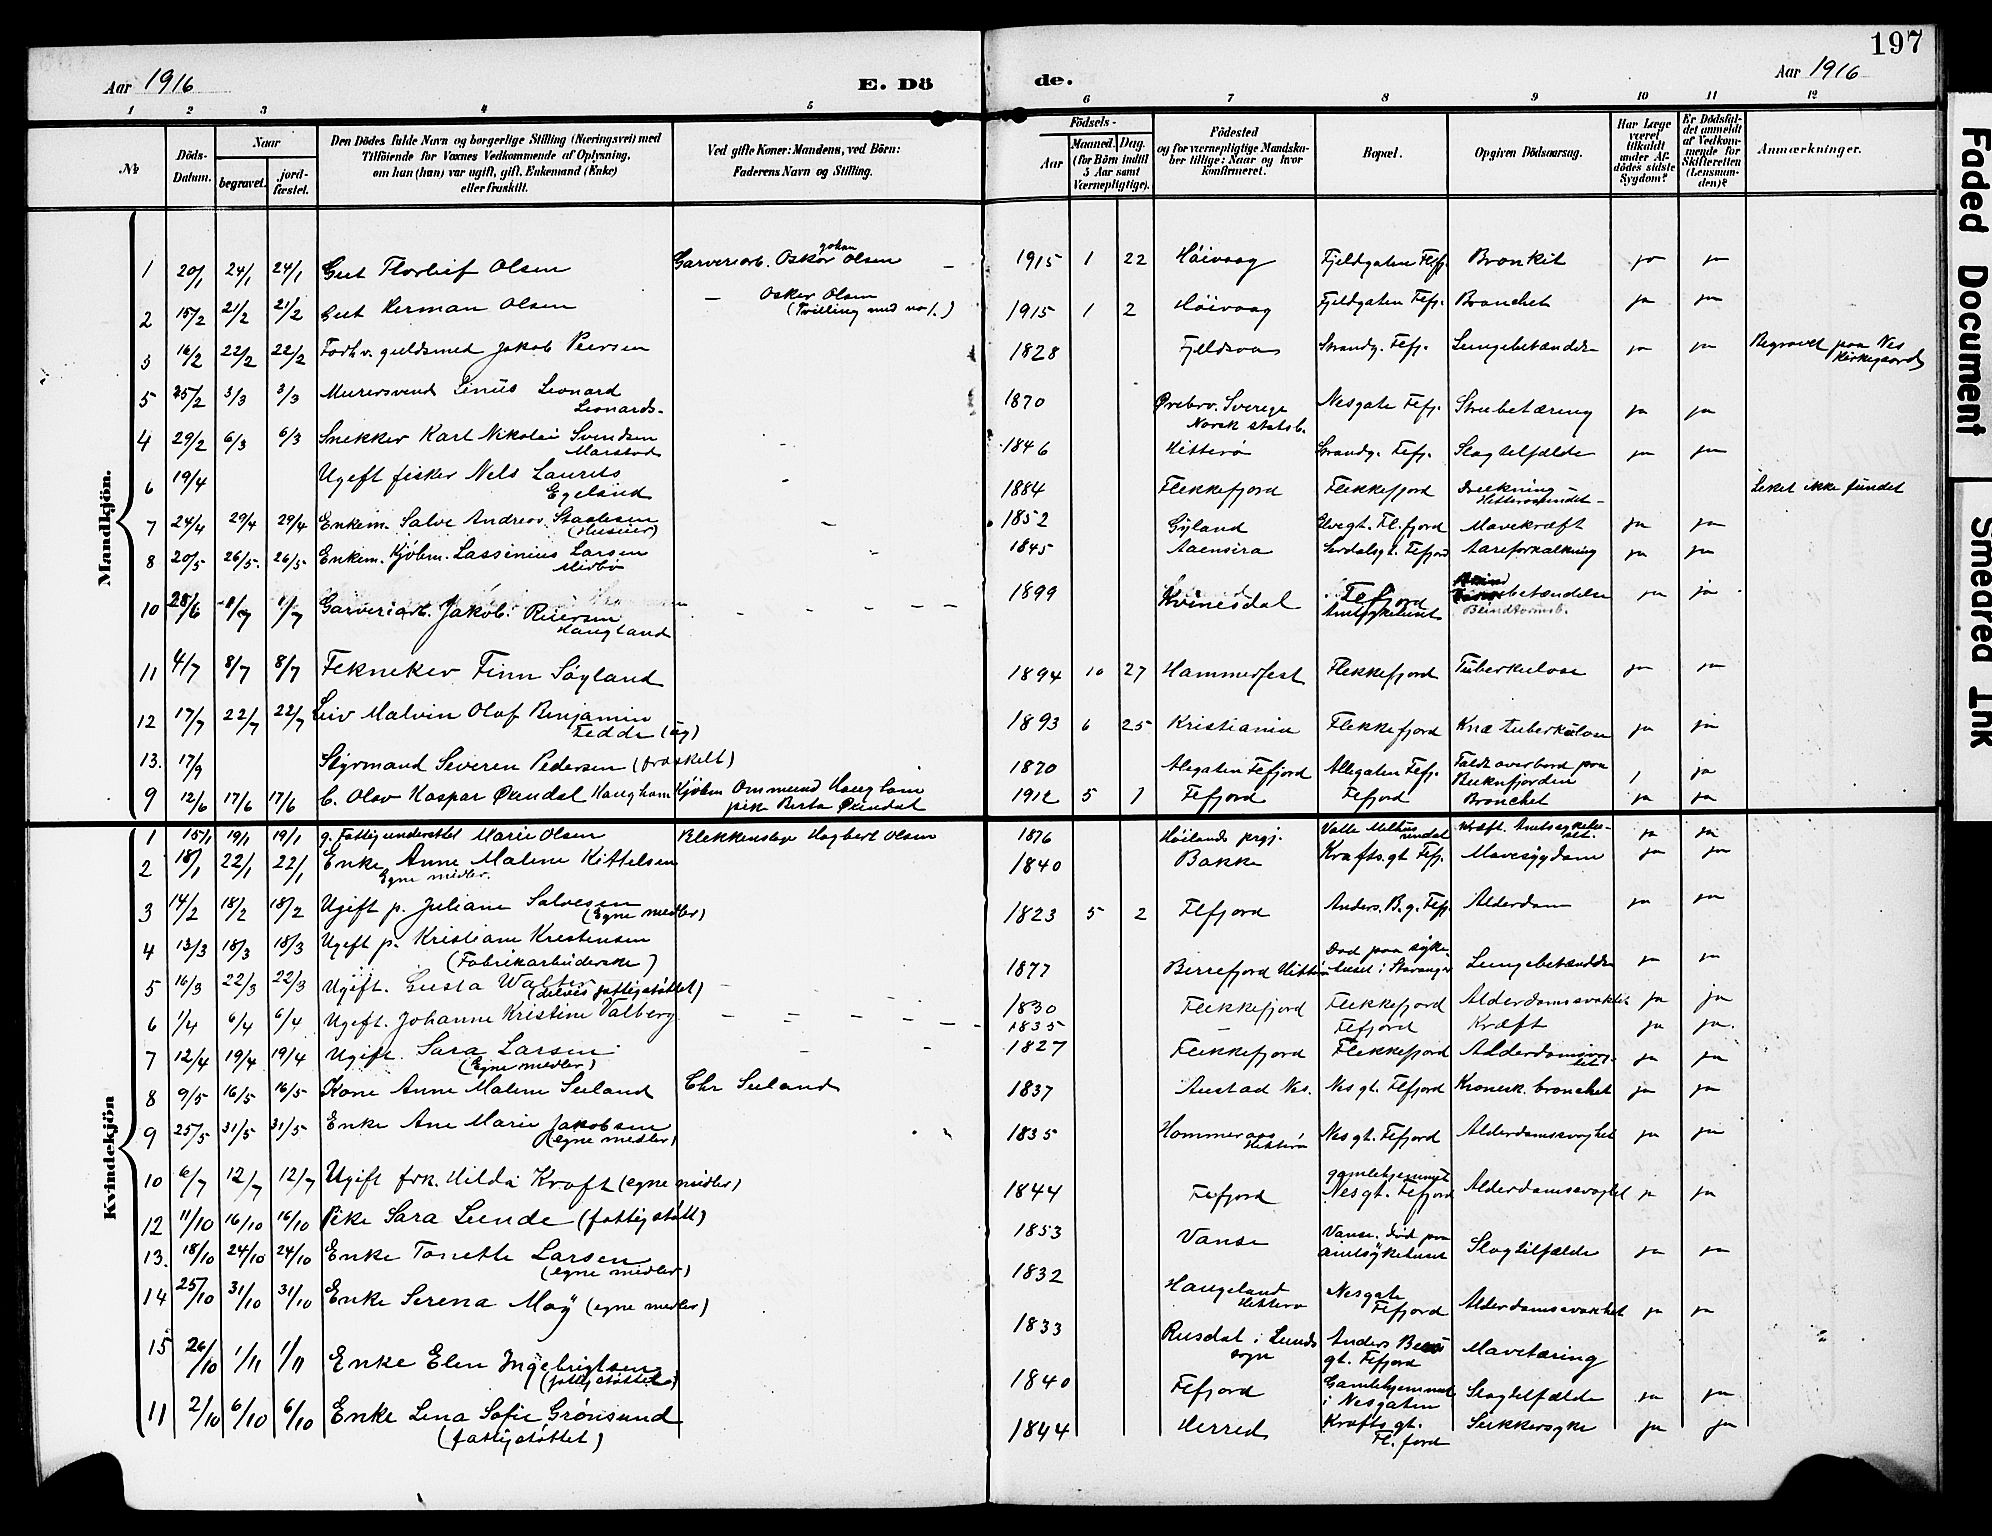 197
Aar 1916
E. Dö
de.
Aar 1916
1 2 3 4 5 6 7 8 9 10 11 12
№
Döds-Datum.
Naar
begravet.
jord-fæstet.
Den Dödes fulde Navn og borgerlige Stilling (Næringsvei) med
Tilföiende for Voxnes Vedkommende af Oplysning,
om han (hun) var ugift, gift, Enkemand (Enke)
eller fraskilt.
Ved gifte Koner: Mandens, ved Börn:
Faderens Navn og Stilling.
Födsels-
Aar
Maaned. Dag.
(for Börn indtil
5 Aar samt
Værnepligtige).
Födested
og for værnepligtige Mandska-
ber tillige: Naar og hvor
konfirmeret.
Bopæl.
Opgiven Dödsaarsag.
Har Læge
været
tilkaldt
under Af-
dödes sidste
Sygdom?
Er Dödsfal-
det anmeldt
af Vedkom-
mende for
Skifteretten
(Lensman-
den)?
Anmærkninger.
Mandkjön.
1 20/1 24/1 24/1 Gut Thorleif Olsen Garveriarb. Oskar Johan Olsen 1915 1 22 Höivaag Fjeldgaten Flefj. Bronkit ja ja
2 15/2 21/2 21/2 Gut Herman Olsen Oskar Olsen (Tvilling med no 1.) 1915 1 2 Höivaag Fjeldgaten Fefj. Bronchit ja ja
3 16/2 22/2 22/2 Forhv. guldsmed Jakob Peersen 1828 Strandg. Fefj. Lungebetændelse ja ja Begravet paa Nes Kirkegaard
5 25/2 3/3 3/3 Murersvend Linus Leonard Leonards- 1870 Örebro. Sverige Norsk statsb. Nesgate Fefj. Strubetæring ja ja
4 29/2 6/3 6/3 Snekker Karl Nikolai Svendsen Marstad 1846 Hitterö Strandg. Fefj. Slagtilfælde ja ja
6 19/4 Ugift fisker Nels Laurits Egeland 1884 Flekkefjord Flekkefjord Drukning Liket ikke fundet
7 24/4 29/4 29/4 Enkem. Salve Andreas Staalesen 1852 Gyland Elvegt. Fl.fjord Mavekræft ja ja
8 20/5 26/5 26/5 Enkem. Kjöbm. Lassinius Larsen Midbö 1845 Aaensira Sirdalsgt. Fefjord Aareforkalkning ja ja
10 28/6 1/7 1/7 Garveriarb. Jakob Reiersen Haugland 1899 Kvinesdal Fefjord Amtsykehuset ja ja
11 4/7 8/7 8/7 Tekneker Finn Söyland 1894 10 27 Hammerfest Flekkefjord Tuberkulose ja ja
12 17/7 22/7 22/7 Leiv Malvin Olaf Benjamin Fedde (ug) 1893 6 25 Kristiania Flekkefjord Knæ tuberkulose ja ja
13. 17/9 Styrmand Severin Pedersen (fraskelt) 1870 Allegaten Fefjord Allegaten Fefj. Faldt overbord paa Buknfjorden 1 ja
9 12/6 17/6 17/6 b. Olav Kaspar Ökendal Haughom Kjöbm Ommund Haughom pike Berta Ökendal 1912 5 1 Fefjord Fefjord Bronchit ja ja
Kvindekjön
1 15/1 19/1 19/1 g. Fattigunderstöt Marie Olsen Blekkenslager Hagbert Olsen 1876 Höilands prgj. Kræft. ja ja
2 18/1 22/1 22/1 Enke Anne Malene Kittelsen Egne midler. 1840 Bakke Krafts.gt Fefj. Mavesygdom ja ja
3 14/2 18/2 18/2 Ugift p. Juliane Salvesen (Egne midler) 1823 5 2 Flefjord Anders. B.g. Flefj. Alderdom ja ja
4 13/3 18/3 18/3 Ugift p. Kristiane Kristensen (Fabrikarbeiderske) 1877 Berrefjord Hitterö Död paa syke-huset i Stavanger Lungebetændelse ja ja
5 16/3 22/3 22/3 Ugift. Gusta Walter (delvis fattigstöttet) 1830 Flekkefjord Flekkefjord Alderdomssvakhet ja ja
6 1/4 6/4 6/4 Ugift. Johanne Kristine Valberg 1835 — Fefjord Kræft ja ja
7 12/4 19/4 19/4 Ugift. Sara Larsen (Egne midler) 1827 Flekkefjord Flekkefjord Alderdomsvag-het ja ja
8 9/5 16/5 16/5 Kone Anne Malene Seland Chr Seland 1837 Austad Nes. Nesgt. Flefjord Kronisk. bronchit ja ja
9 25/5 31/5 31/5 Enke Ane Marie Jakobsen (egne midler) 1835 Hitterö Nesgt. Fefjord Alderdomssvaghet ja ja
10 6/7 12/7 12/7 Ugift frk. Hilda Kraft (egne midler) 1844 Fefjord gamlehjemmet Nesgt. Fefjord Alderdomssvaghet ja ja
12 11/10 16/10 16/10 Pike Sara Lunde (fattigstött) 1853 Vanse Vanse. död paa amtsykehuset Slagtilfælde ja ja
13. 18/10 24/10 24/10 Enke Tonette Larsen (egne midler) 1832 Haugeland Hitterö Nesgate Fefjord Alderdomssvakhet ja ja
14 25/10 31/10 31/10 Enke Serena Moy (egne midler) 1833 Rusdal i Lunds sogn Anders Beers gt. Fefjord Mavetæring
15 26/10 1/11 1/11 Enke Elen Ingebrigtsen (fattigstöttet) 1840 Fefjord Gamlehjemmet i Nesgaten Slagtilfælde ja ja
11 2/10 6/10 6/10 Enke Lina Sofie Grönsund (fattigstöttet) 1844 Herred Kraftsgt. Fl.fjord Sukkersyke ja ja
Faded Document
Smeared Ink